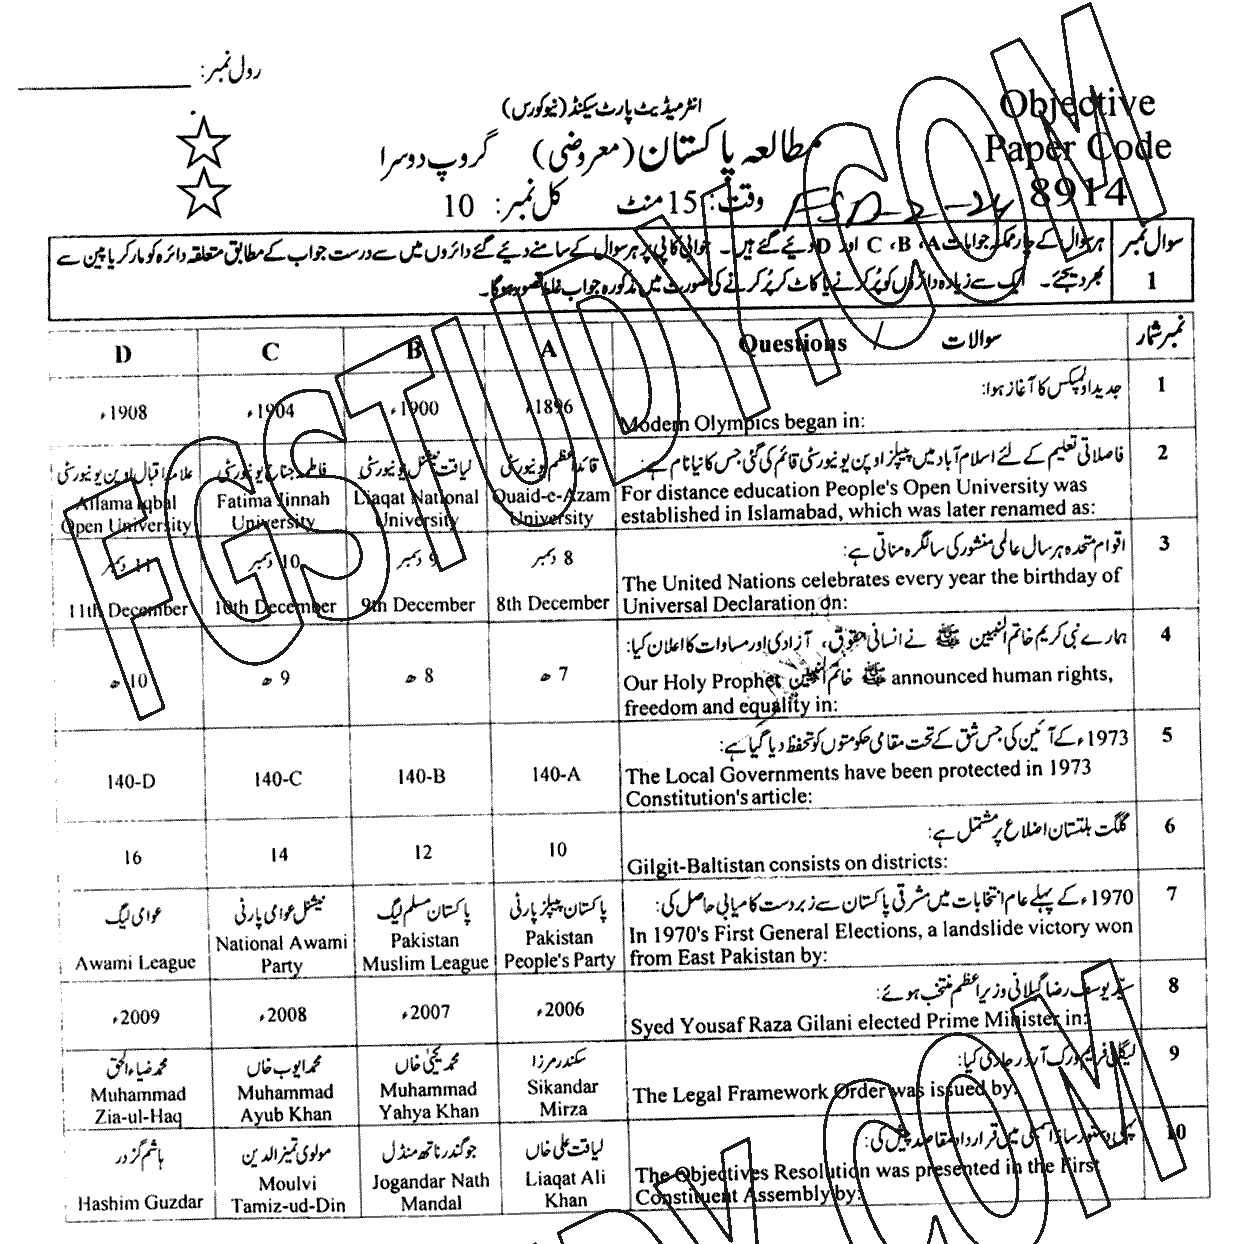 رول نمبر:
انٹرمیڈیٹ پارٹ سیکنڈ (نیو کورس)
Objective
مطالعہ پاکستان (معروضی) گروپ دوسرا
Paper Code
وقت: 15 منٹ کل نمبر: 10
8914
سوال نمبر 1
ہر سوال کے چار ممکنہ جوابات A، B، C اور D دیئے گئے ہیں۔ جوابی کاپی پر ہر سوال کے سامنے دیئے گئے دائروں میں سے درست جواب کے مطابق متعلقہ دائرہ کو مارکر یا پین سے
بھر دیجئے۔ ایک سے زیادہ دائروں کو پُر کرنے یا کاٹ کر پُر کرنے کی صورت میں مذکورہ جواب غلط تصور ہوگا۔
D C B A Questions / سوالات نمبر شمار
1 جدید اولمپکس کا آغاز ہوا:
Modern Olympics began in:
1896ء 1900ء 1904ء 1908ء
2 فاصلاتی تعلیم کے لئے اسلام آباد میں پیپلز اوپن یونیورسٹی قائم کی گئی جس کا نیا نام ہے:
For distance education People's Open University was
established in Islamabad, which was later renamed as:
قائد اعظم یونیورسٹی
Quaid-e-Azam
University
لیاقت نیشنل یونیورسٹی
Liaqat National
University
فاطمہ جناح یونیورسٹی
Fatima Jinnah
University
علامہ اقبال اوپن یونیورسٹی
Allama Iqbal
Open University
3 اقوام متحدہ ہر سال عالمی منشور کی سالگرہ مناتی ہے:
The United Nations celebrates every year the birthday of
Universal Declaration on:
8 دسمبر
8th December
9 دسمبر
9th December
10 دسمبر
10th December
11 دسمبر
11th December
4 ہمارے نبی کریم خاتم النبیین ﷺ نے انسانی حقوق، آزادی اور مساوات کا اعلان کیا:
Our Holy Prophet خاتم النبیین ﷺ announced human rights,
freedom and equality in:
7ھ 8ھ 9ھ 10ھ
5 1973ء کے آئین کی جس شق کے تحت مقامی حکومتوں کو تحفظ دیا گیا ہے:
The Local Governments have been protected in 1973
Constitution's article:
140-A 140-B 140-C 140-D
6 گلگت بلتستان اضلاع پر مشتمل ہے:
Gilgit-Baltistan consists on districts:
10 12 14 16
7 1970ء کے پہلے عام انتخابات میں مشرقی پاکستان سے زبردست کامیابی حاصل کی:
In 1970's First General Elections, a landslide victory won
from East Pakistan by:
پاکستان پیپلز پارٹی
Pakistan
People's Party
پاکستان مسلم لیگ
Pakistan
Muslim League
نیشنل عوامی پارٹی
National Awami
Party
عوامی لیگ
Awami League
8 سید یوسف رضا گیلانی وزیراعظم منتخب ہوئے:
Syed Yousaf Raza Gilani elected Prime Minister in:
2006ء 2007ء 2008ء 2009ء
9 لیگل فریم ورک آرڈر جاری کیا:
The Legal Framework Order was issued by:
سکندر مرزا
Sikandar
Mirza
محمد یحییٰ خاں
Muhammad
Yahya Khan
محمد ایوب خاں
Muhammad
Ayub Khan
محمد ضیاء الحق
Muhammad
Zia-ul-Haq
10 پہلی دستور ساز اسمبلی میں قرارداد مقاصد پیش کی:
The Objectives Resolution was presented in the First
Constituent Assembly by:
لیاقت علی خاں
Liaqat Ali
Khan
جوگندر ناتھ منڈل
Jogandar Nath
Mandal
مولوی تمیز الدین
Moulvi
Tamiz-ud-Din
ہاشم گزدر
Hashim Guzdar
FGSTUDY.COM